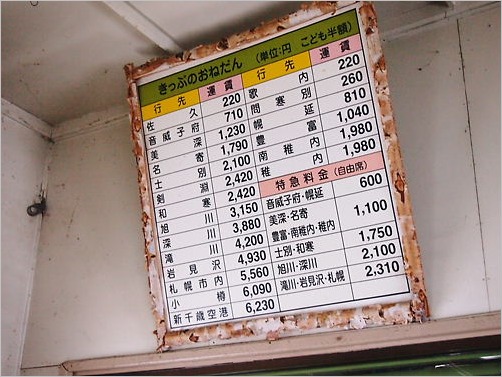 きっぷのおねだん （単位:円 こども半額）
行先 運賃
佐久 220
音威子府 710
美深 1,230
名寄 1,790
士別 2,100
剣淵 2,420
和寒 2,420
旭川 3,150
深川 3,880
滝川 4,200
岩見沢 4,930
札幌市内 5,560
小樽 6,090
新千歳空港 6,230
行先 運賃
歌内 220
問寒別 260
幌延 810
豊富 1,040
南稚内 1,980
稚内 1,980
特急料金（自由席）
音威子府・幌延 600
美深・名寄
豊富・南稚内・稚内 1,100
士別・和寒 1,750
旭川・深川 2,100
滝川・岩見沢・札幌 2,310